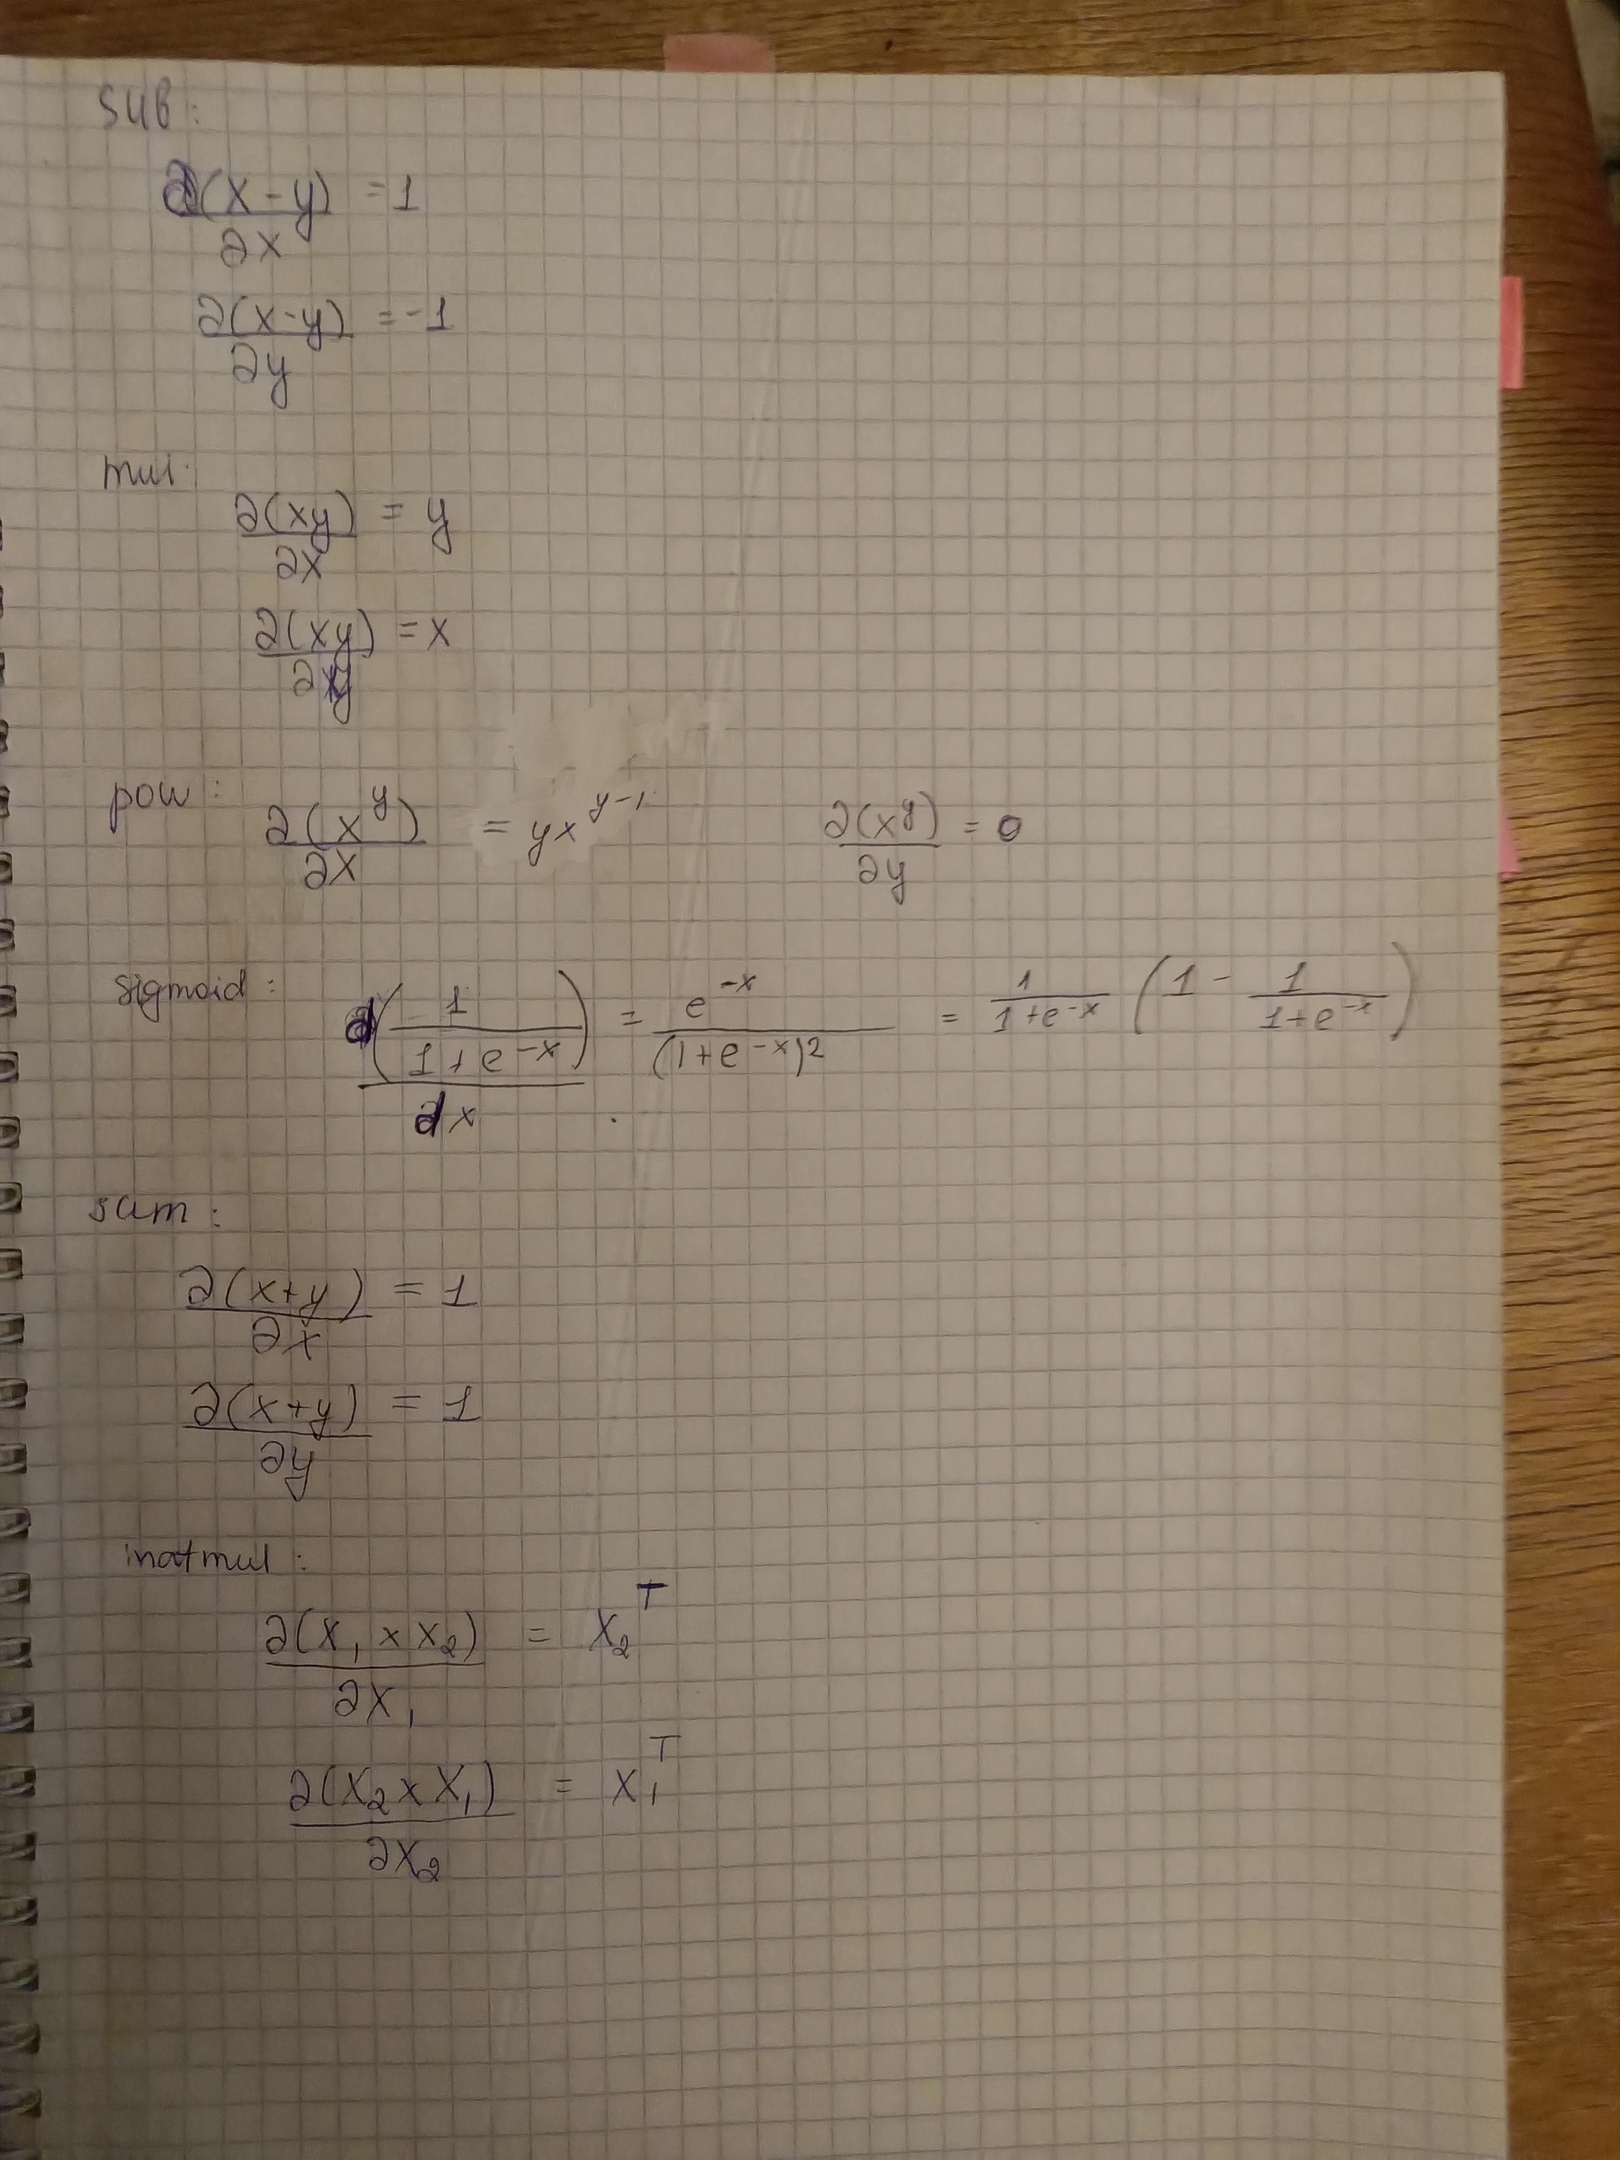 sub:
∂(x-y)/∂x = 1
∂(x-y)/∂y = -1
mul:
∂(xy)/∂x = y
∂(xy)/∂y = x
pow: ∂(x^y)/∂x = yx^(y-1) ∂(x^y)/∂y = 0
sigmoid: d(1/(1+e^(-x)))/dx = e^(-x)/(1+e^(-x))^2 = 1/(1+e^(-x)) (1 - 1/(1+e^(-x)))
sum:
∂(x+y)/∂x = 1
∂(x+y)/∂y = 1
matmul:
∂(X₁ × X₂)/∂X₁ = X₂^T
∂(X₂ × X₁)/∂X₂ = X₁^T